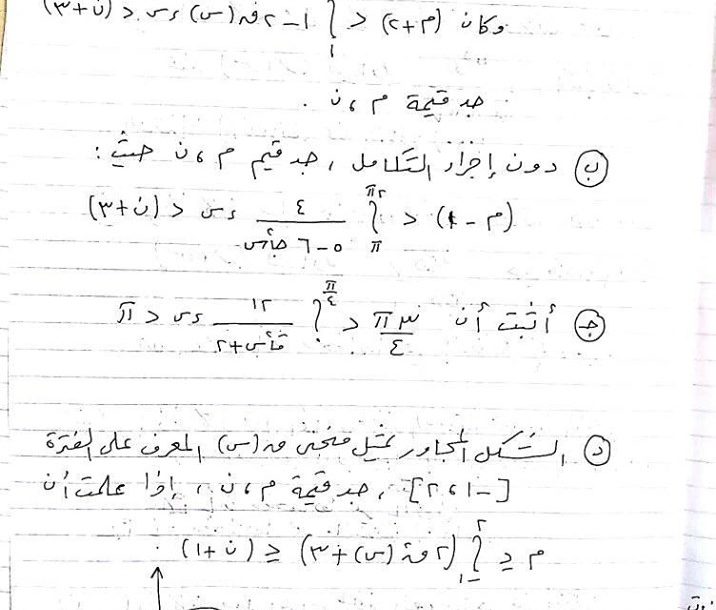 وكان (م+٢) > ∫ ١-٢ق(س) ءس > (ن+٣)
١
جد قيمة م ، ن .
(ب) دون إجراء التكامل ، جد قيم م ، ن حيث :
(م-١) > ∫_π^٢π ٤/(٥-٦جأس) ءس > (ن+٣)
(ج) أثبت أن ٣π/٤ > ∫^π/٤ ١٢/(قأس+٢) ءس > π
(د) الشكل المجاور يمثل منحنى ق(س) المعرف على الفترة
[-١ ، ٢] ، جد قيمة م ، ن ، إذا علمت أن
م ≥ ∫_-١^٢ (٢ق(س)+٣) ≥ (ن+١)